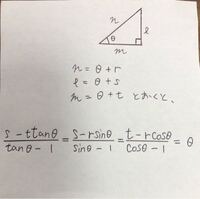 n
l
θ
m
n = θ + r
l = θ + s
m = θ + t とおくと、
(s - t tanθ)/(tanθ - 1) = (s - r sinθ)/(sinθ - 1) = (t - r cosθ)/(cosθ - 1) = θ